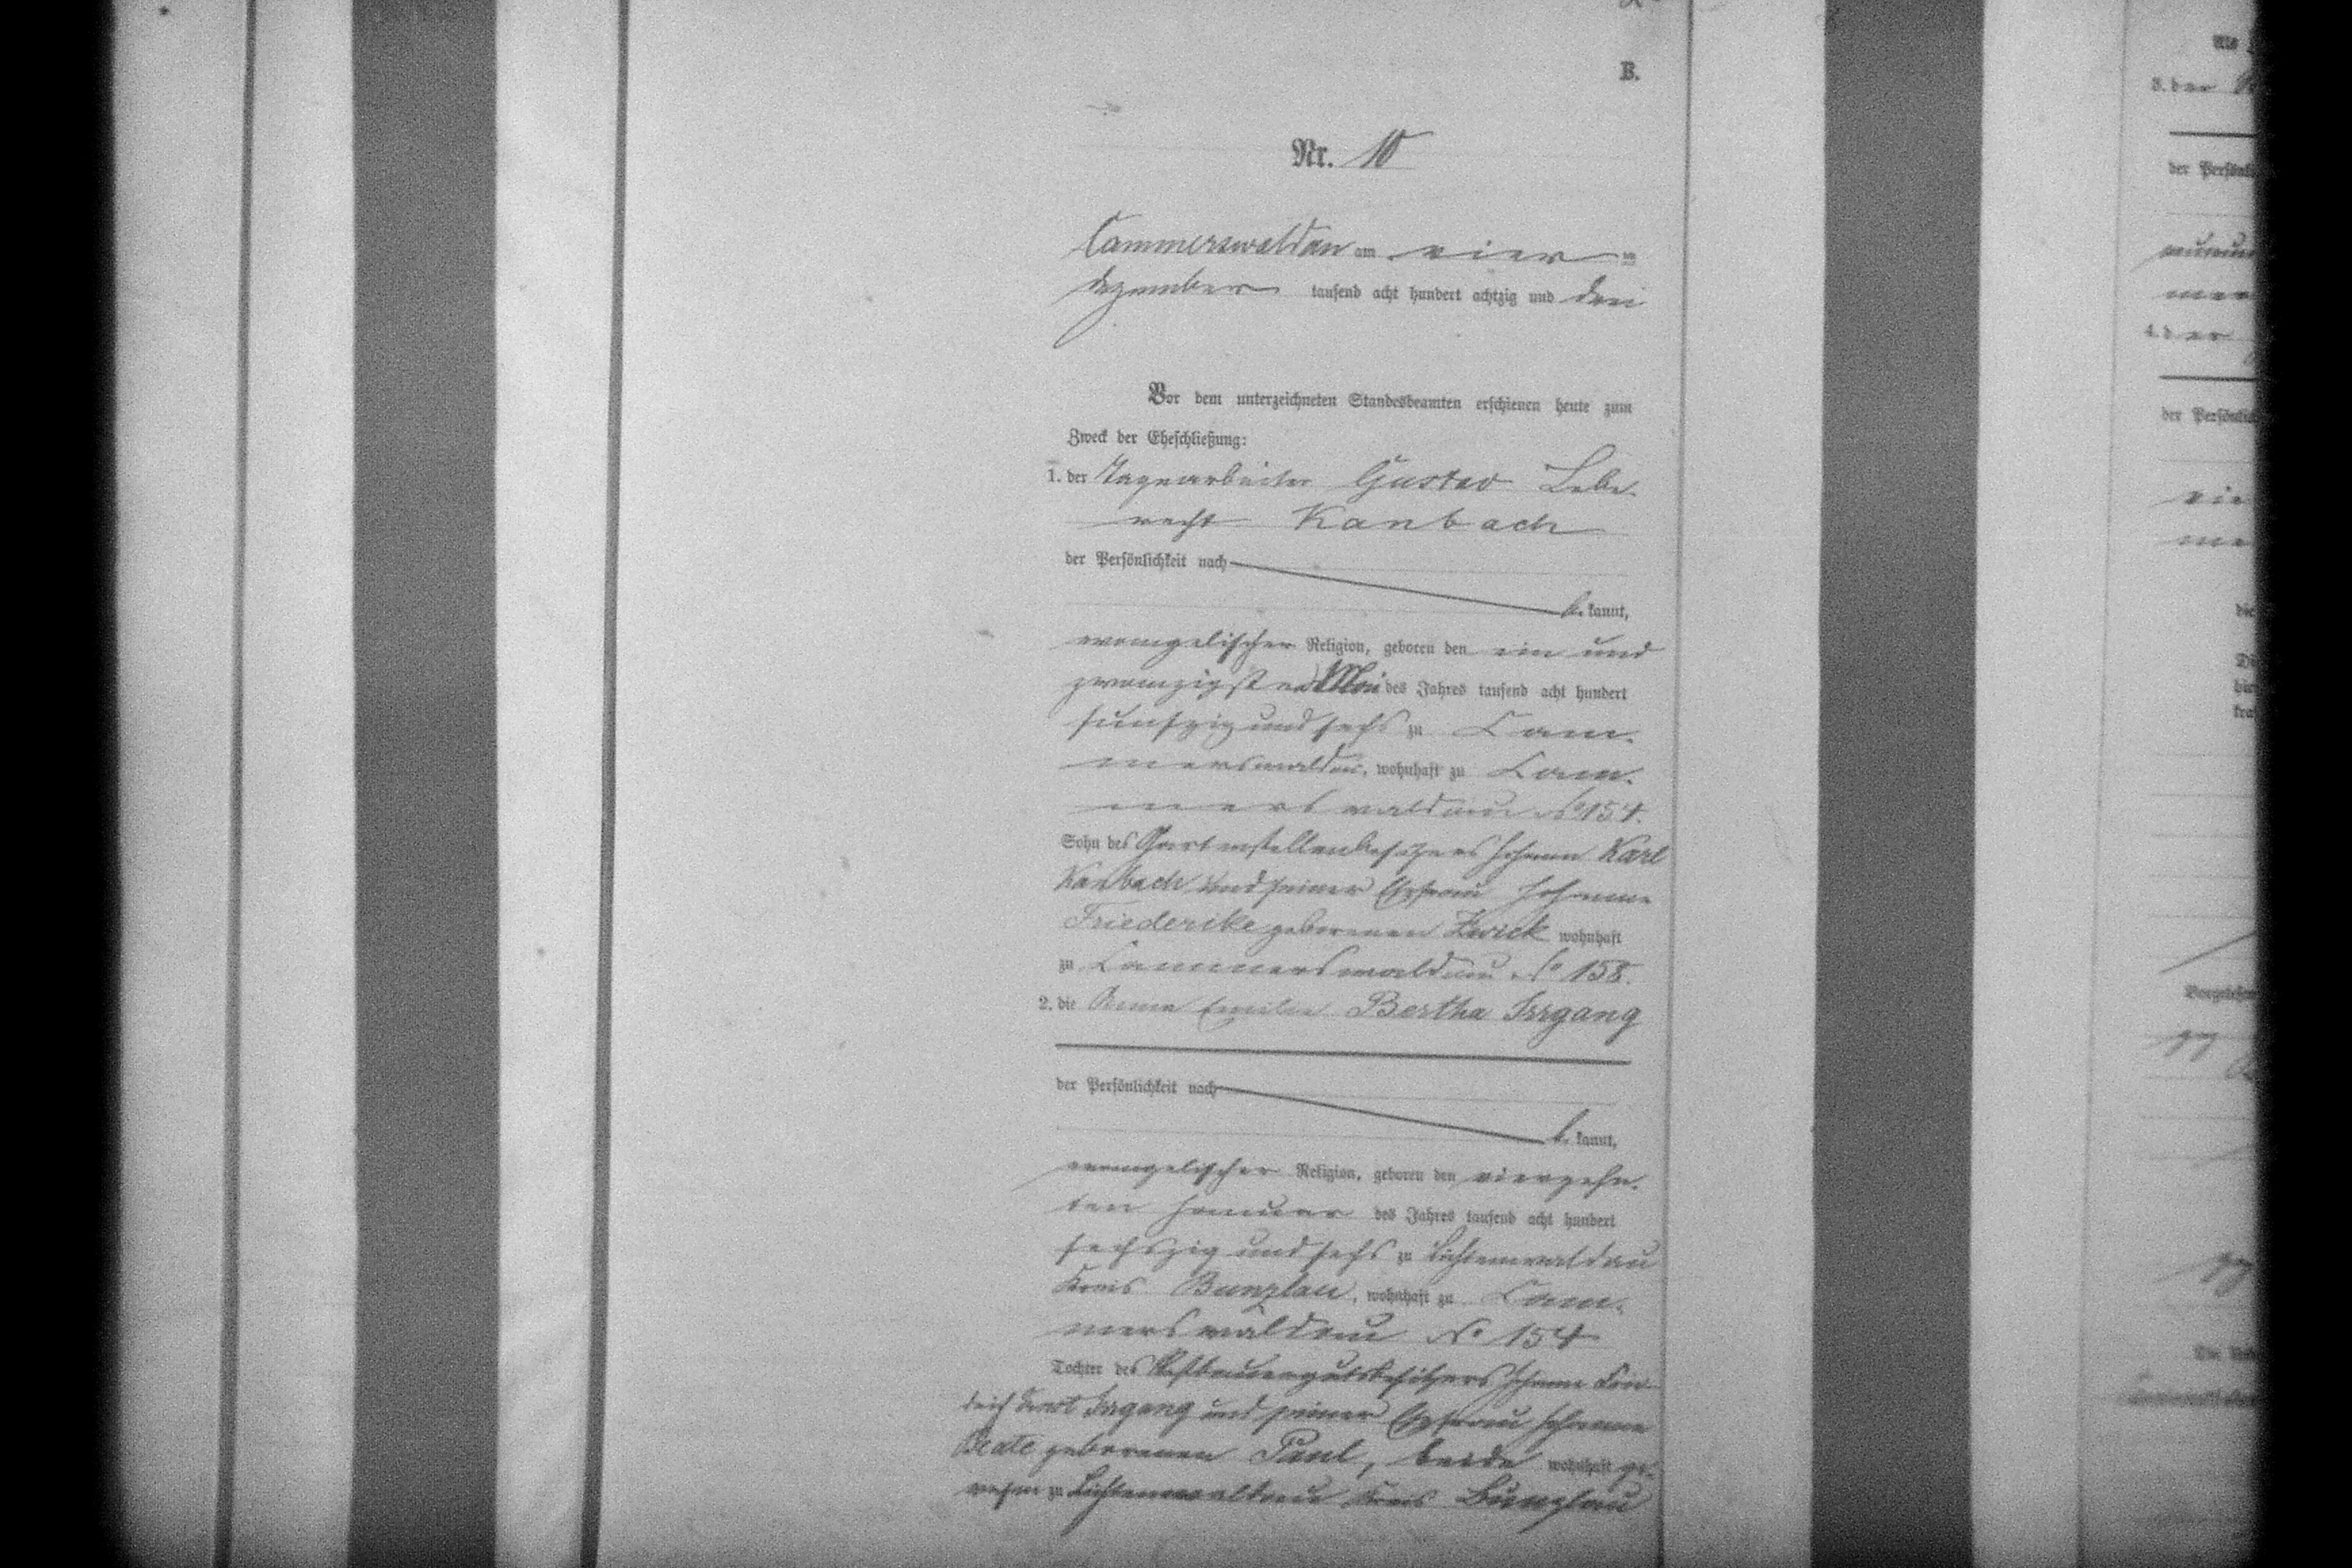 B.
Nr. 10
Cammerswaldau am vier ten
Dezember tausend acht hundert achtzig und drei
Vor dem unterzeichneten Standesbeamten erschienen heute zum
Zweck der Eheschließung:
1. der Tagearbeiter Gustav Lebe-
recht Kanbach
der Persönlichkeit nach
be kannt,
evangelischer Religion, geboren den ein und
zwanzigsten Mai des Jahres tausend acht hundert
fünfzig und sechs zu Cam-
merswaldau, wohnhaft zu Cam-
merswaldau No 154.
Sohn des Gartenstellenbesitzers Johann Karl
Kanbach und seiner Ehefrau Johanne
Friederike geborenen Zwick wohnhaft
zu Cammerswaldau No 158.
2. die Anna Emilie Bertha Irrgang
der Persönlichkeit nach
be kannt,
evangelischer Religion, geboren den vierzehn-
ten Januar des Jahres tausend acht hundert
sechszig und sechs zu Lichtenwaldau
Kreis Bunzlau, wohnhaft zu Cam-
merswaldau No 154
Tochter des Restbauergutsbesitzers Johann
Irrgang und seiner Ehefrau Johanne
Beate geborenen Paul, beide wohnhaft ge-
wesen zu Lichtenwaldau Kreis Bunzlau
3. der
der Persönlich
4. der
der Persönlich
die